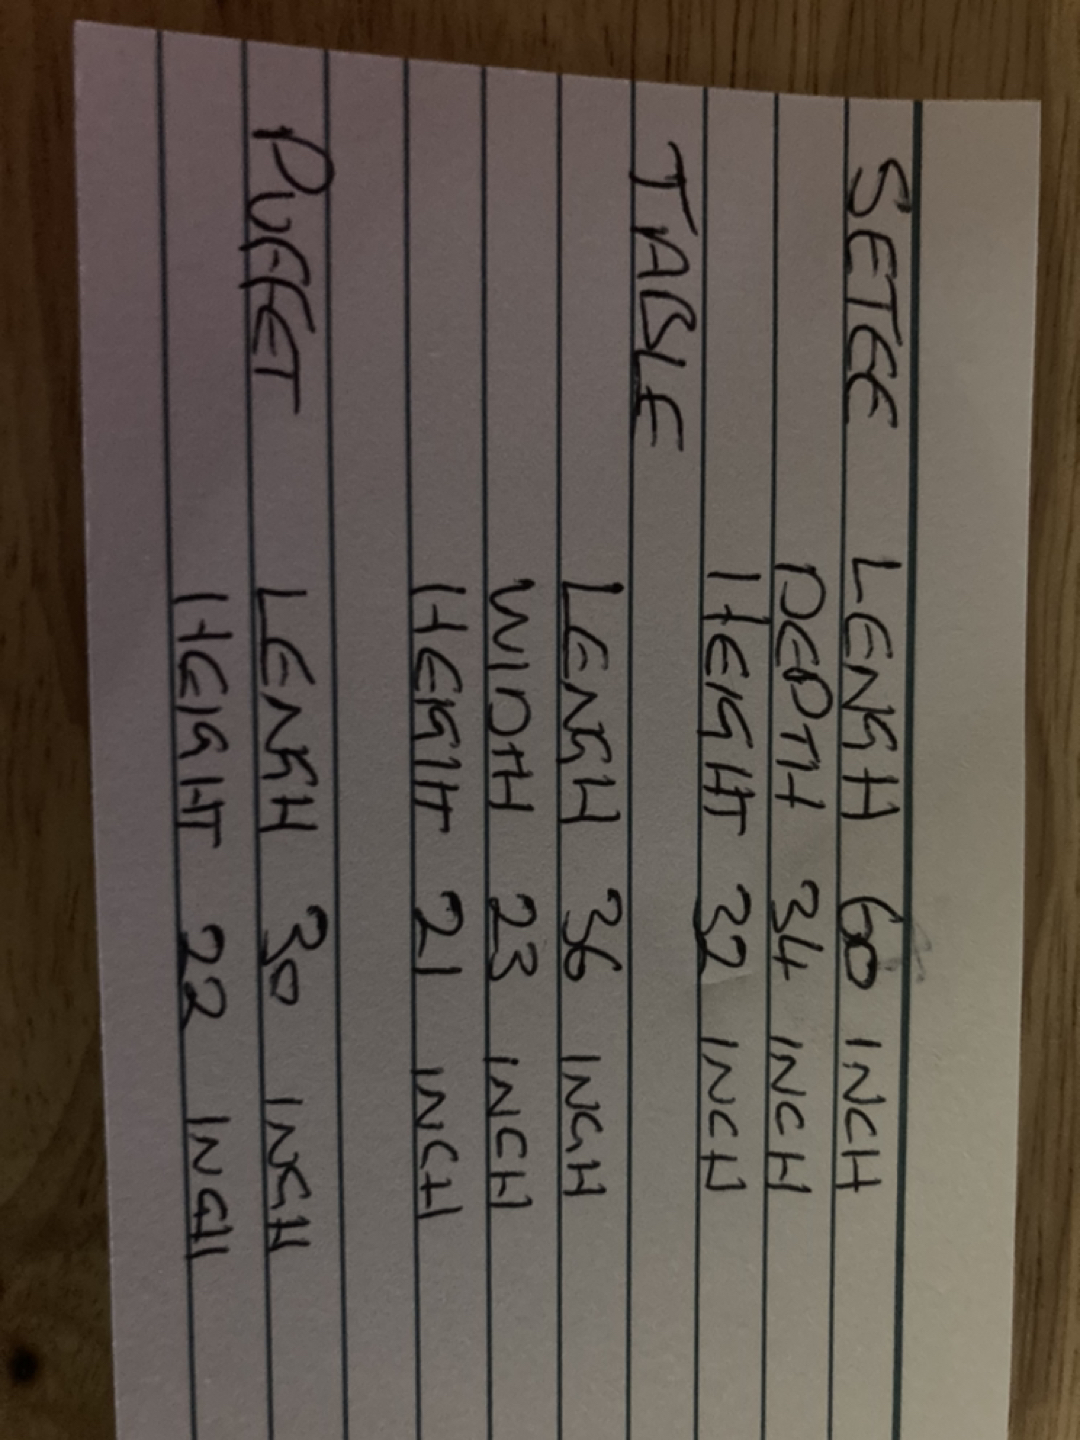 SETEE LENGH 60 INCH
DEPTH 34 INCH
HEIGHT 32 INCH
TABLE
LENGH 36 INCH
WIDTH 23 INCH
HEIGHT 21 INCH
PUFFET LENGH 30 INCH
HEIGHT 22 INCH